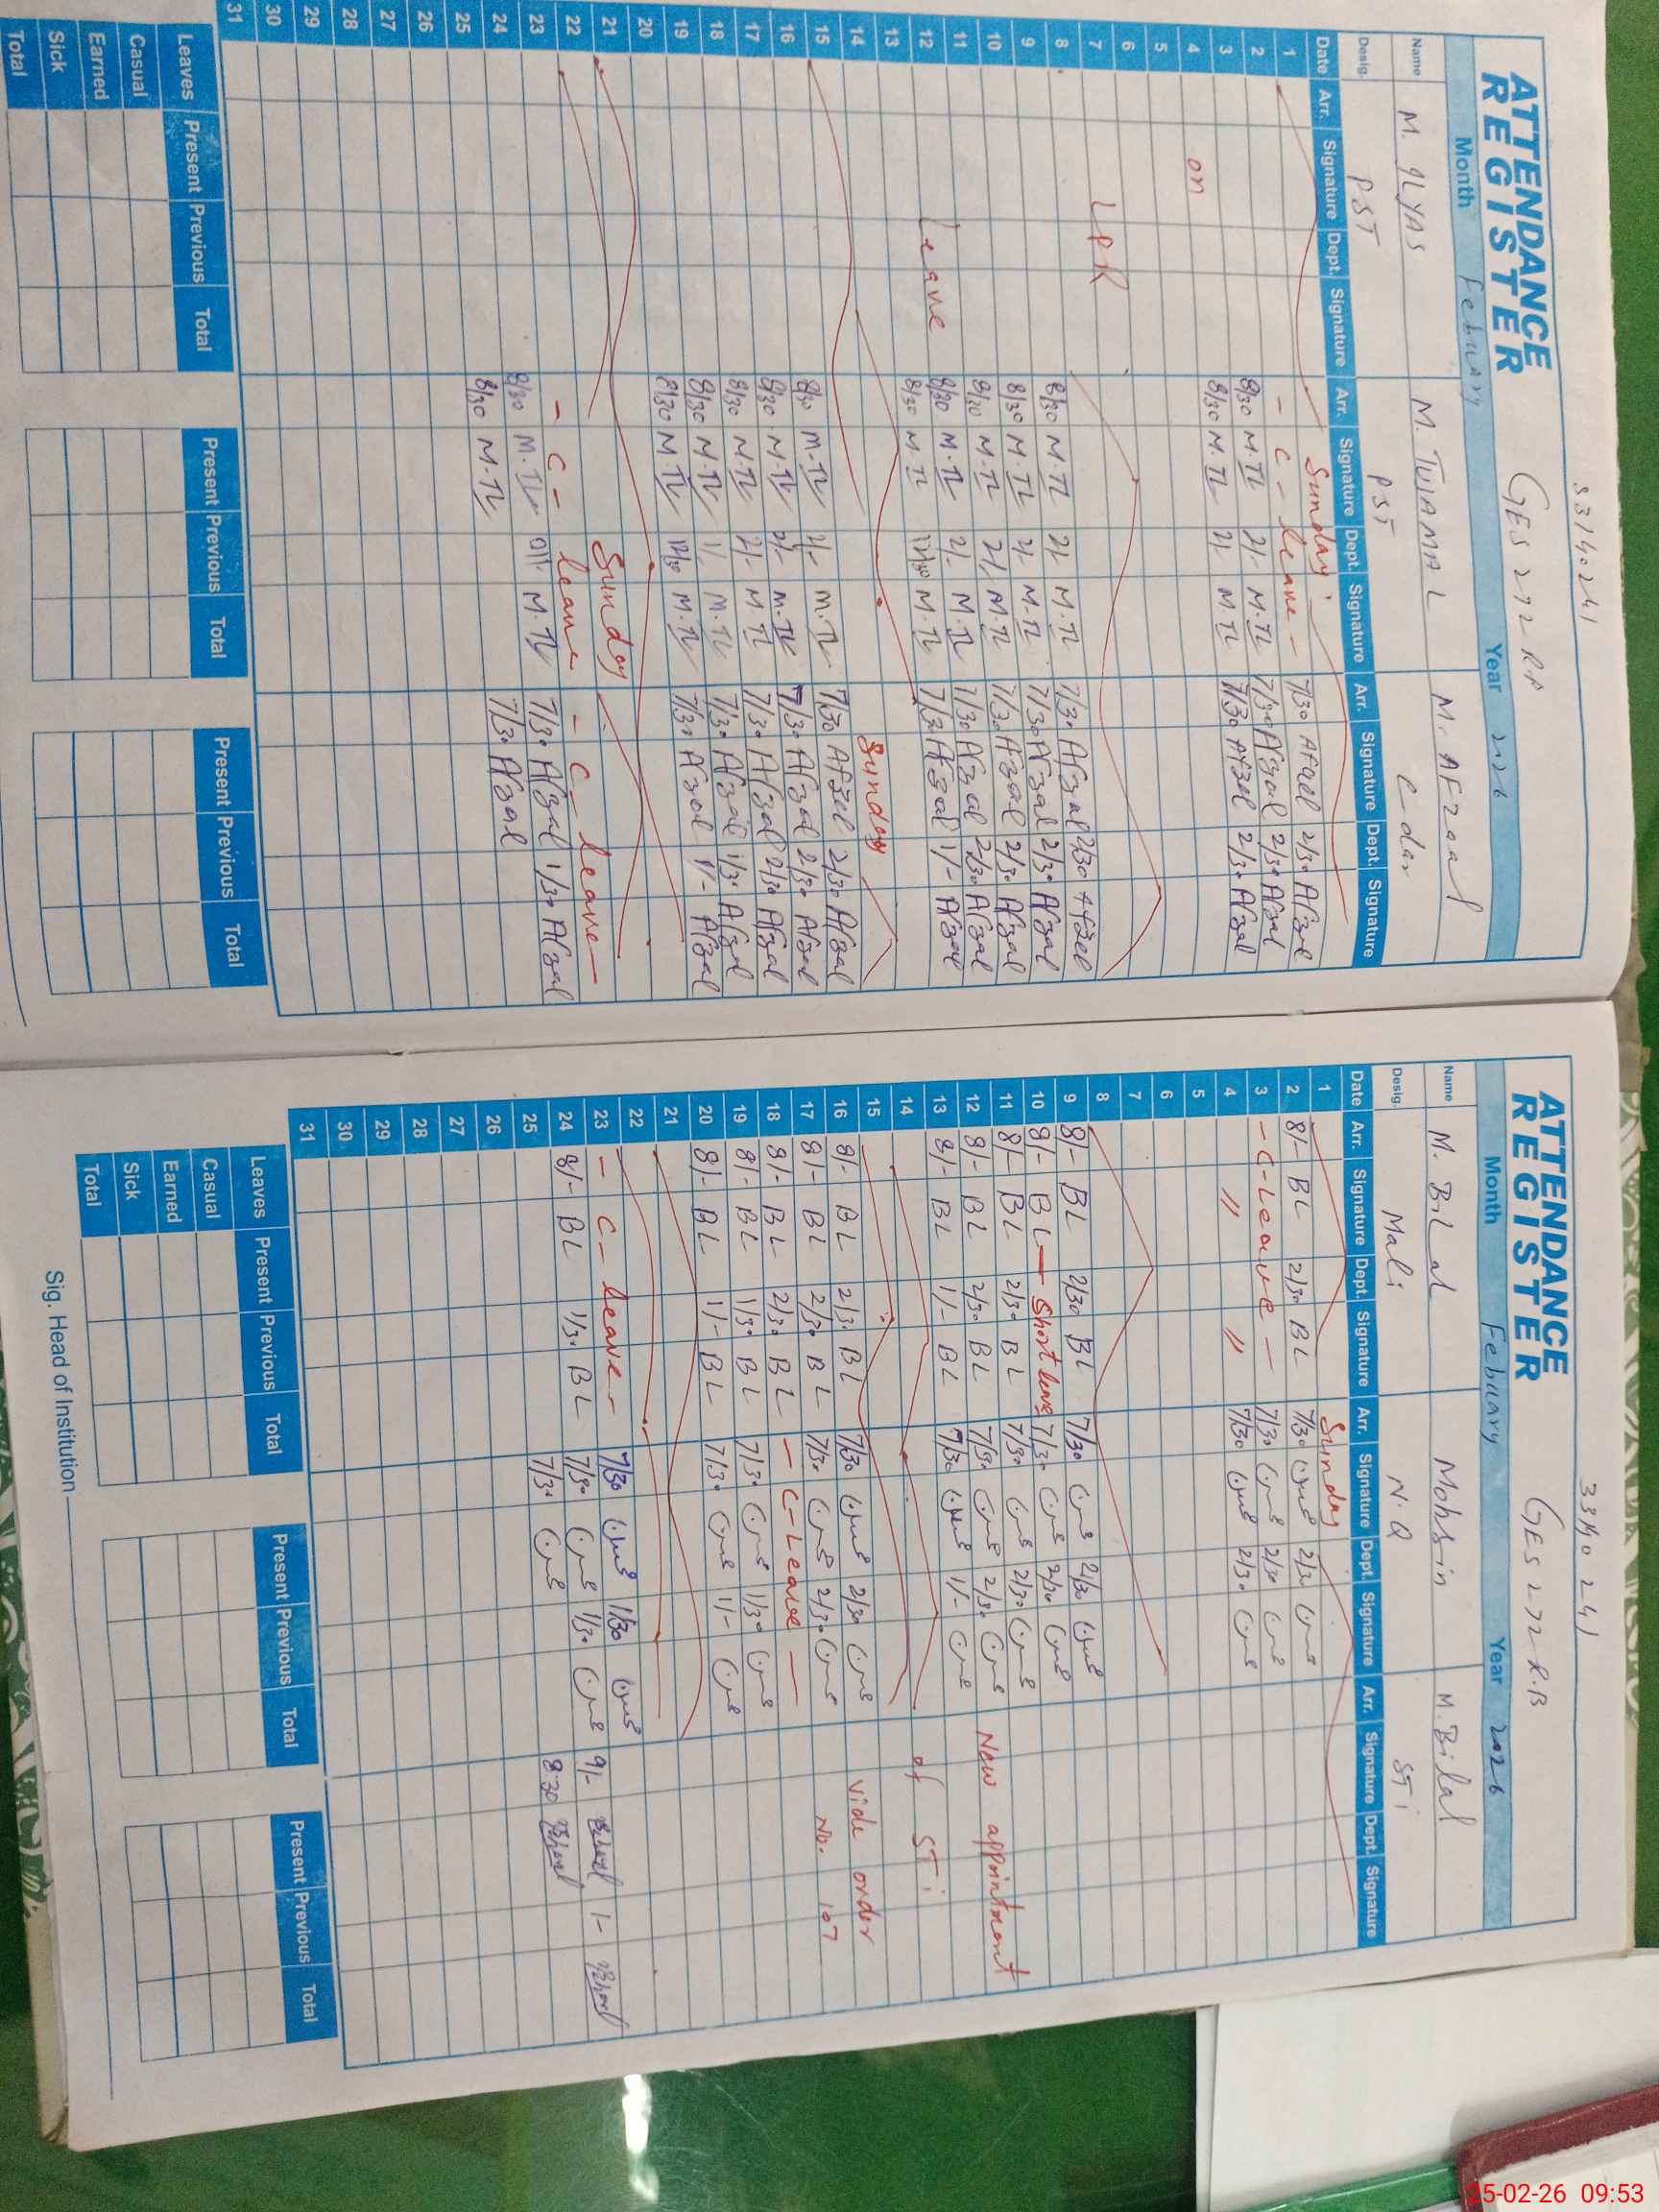 33140241
ATTENDANCE REGISTER
GES 272 RB
Month Febuary Year 2026
Name M. ILYAS M. TUFAMAL M. AFzaal
Desig. PST PST
Date Arr. Signature Dept. Signature Arr. Signature Dept. Signature Arr. Signature Dept. Signature
1 Sunday
2 - C - leave - 7/30 Afzal 2/30 Afzal
3 8/30 M.TL 2/- M.TL 7/30 Afzal 2/30 Afzal
4 on 8/30 M.TL 2/- M.TL 7/30 Afzal 2/30 Afzal
5
6
7 LPR
8
9 8/30 M.TL 2/- M.TL 7/30 Afzal 2/30 Afzal
10 8/30 M.TL 2/- M.TL 7/30 Afzal 2/30 Afzal
11 8/30 M.TL 2/- M.TL 7/30 Afzal 2/30 Afzal
12 leave 8/30 M.TL 2/- M.TL 7/30 Afzal 2/30 Afzal
13 8/30 M.TL 12/30 M.TL 7/30 Afzal 1/- Afzal
14
15 Sunday
16 8/30 M.TL 2/- M.TL 7/30 Afzal 2/30 Afzal
17 8/30 M.TL 2/- M.TL 7/30 Afzal 2/30 Afzal
18 8/30 M.TL 2/- M.TL 7/30 Afzal 2/30 Afzal
19 8/30 M.TL 1/- M.TL 7/30 Afzal 1/30 Afzal
20 8/30 M.TL 12/30 M.TL 7/30 Afzal 1/- Afzal
21
22 Sunday
23 - C - leave - C - leave -
24 8/30 M.TL 01/- M.TL 7/30 Afzal 1/30 Afzal
25 8/30 M.TL 7/30 Afzal
26
27
28
29
30
31
Leaves Present Previous Total Present Previous Total Present Previous Total
Casual
Earned
Sick
Total
33140241
ATTENDANCE REGISTER
GES 272 R.B
Month Febuary Year 2026
Name M. Bilal Mohsin M. Bilal
Desig. Mali N.Q STi
Date Arr. Signature Dept. Signature Arr. Signature Dept. Signature Arr. Signature Dept. Signature
1 Sunday
2 8/- BL 2/30 BL 7/30 2/30
3 - C - Leave - 7/30 2/30
4 " " 7/30 2/30
5
6
7
8
9 8/- BL 2/30 BL 7/30 2/30
10 8/- BL - Short leave 7/30 2/30
11 8/- BL 2/30 BL 7/30 2/30 New appointment
12 8/- BL 2/30 BL 7/30 2/30
13 8/- BL 1/- BL 7/30 1/- of STi
14
15 vide order
16 8/- BL 2/30 BL 7/30 2/30 No. 107
17 8/- BL 2/30 BL 7/30 2/30
18 8/- BL 2/30 BL - C - Leave -
19 8/- BL 1/30 BL 7/30 1/30
20 8/- BL 1/- BL 7/30 1/-
21
22
23 - C - leave - 7/30 1/30
24 8/- BL 1/30 BL 7/30 1/30 9/- 1-
25 7/30 8:30
26
27
28
29
30
31
Leaves Present Previous Total Present Previous Total Present Previous Total
Casual
Earned
Sick
Total
Sig. Head of Institution
25-02-26 09:53